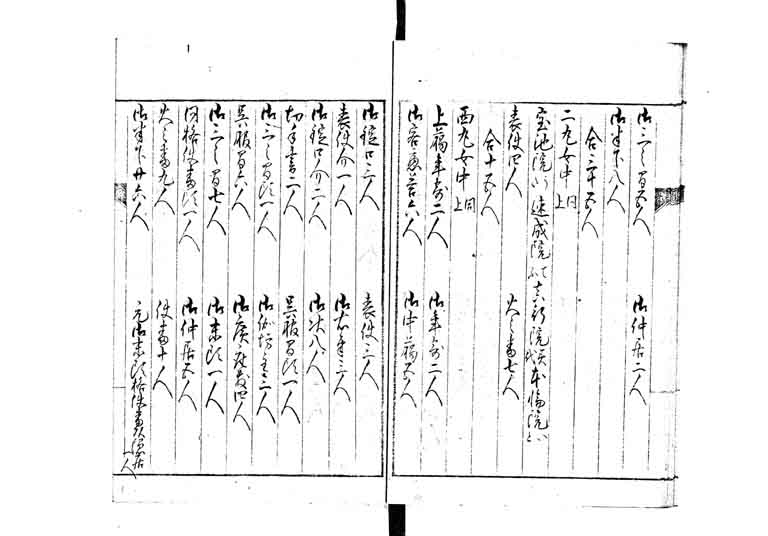 御三之間五人 御仲居二人
御半下八人
合二十五人
二丸女中 同上
宝地院 速成院 院 院
表使四人 火之番七人
合十五人
西丸女中 同上
上﨟年寄二人 御年寄二人
御客応答六人 御中﨟五人
御錠口三人 表使三人
表使介一人 御右筆三人
御錠口介二人 御次八人
切手書二人 呉服間頭一人
御三之間頭一人 御伽坊主三人
呉服間六人 御広座敷四人
御三之間七人 御末頭一人
同格使番頭一人 御仲居五人
火之番九人 使番十人
御半下廿六人 元御末頭格使番頭隠居一人